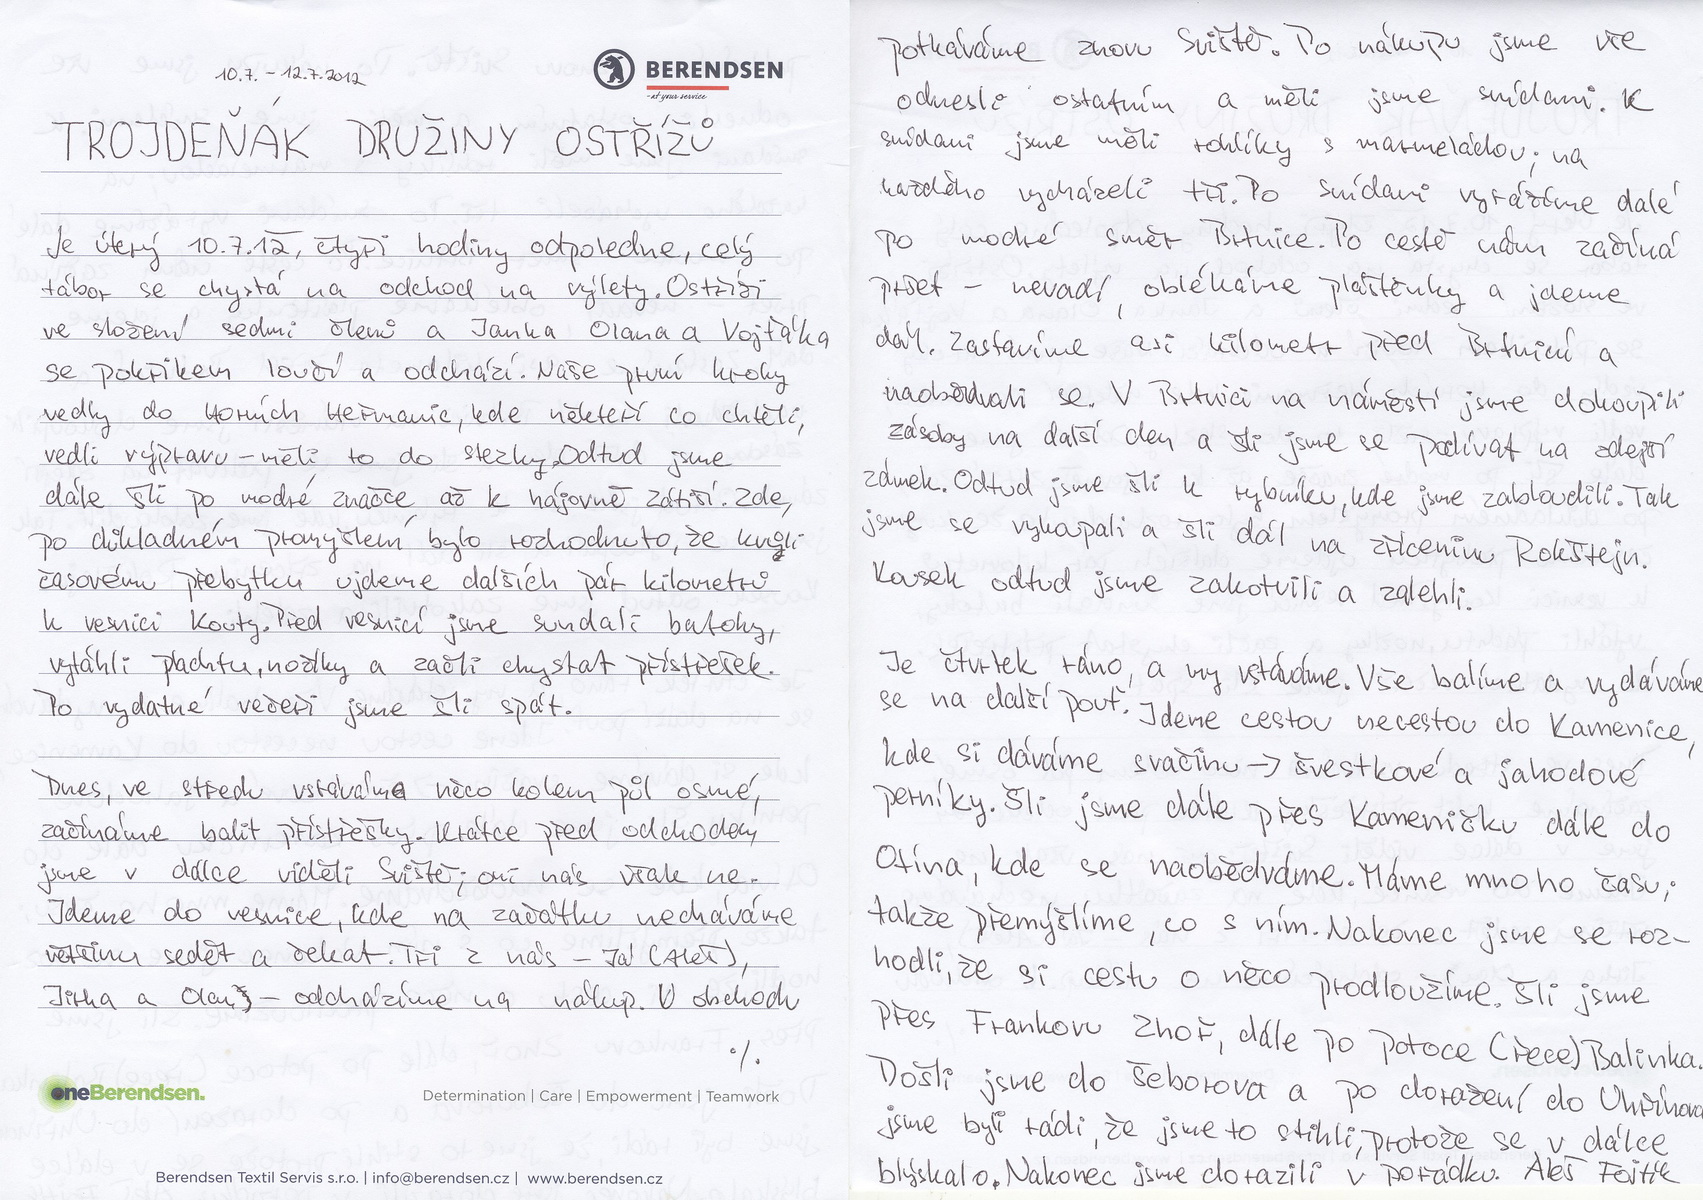 10.7. – 12.7.2012
BERENDSEN
-at your service
TROJDEŇÁK DRUŽINY OSTŘÍŽŮ
Je úterý 10.7.12, čtyři hodiny odpoledne, celý
tábor se chystá na odchod na výlety. Ostříži
ve složení sedmi členů a Janka Olana a Vojťáka
se pokřikem loučí a odchází. Naše první kroky
vedly do Horních Heřmanic, kde někteří co chtěli,
vedli výpravu – měli to do stezky. Odtud jsme
dále šli po modré značce až k hájovně zátiší. Zde,
po důkladném promyšlení, bylo rozhodnuto, že kvůli
časovému přebytku ujdeme dalších pár kilometrů
k vesnici Kouty. Před vesnicí jsme sundali batohy,
vytáhli plachtu, nožíky a začli chystat přístřešek.
Po vydatné večeři jsme šli spát.
Dnes, ve středu vstáváme něco kolem půl osmé,
začínáme balit přístřešky. Krátce před odchodem
jsme v dálce viděli Sviště; oni nás však ne.
Jdeme do vesnice, kde na začátku necháváme
většinu sedět a čekat. Tři z nás – Já (Aleš),
Jirka a Olan – odcházíme na nákup. V obchodu
·/.
oneBerendsen.
Determination | Care | Empowerment | Teamwork
Berendsen Textil Servis s.r.o. | info@berendsen.cz | www.berendsen.cz
potkáváme znovu Sviště. Po nákupu jsme vše
odnesli ostatním a měli jsme snídani. K
snídani jsme měli rohlíky s marmeládou; na
každého vycházeli tři. Po snídani vyrážíme dálé
po modré směr Brtnice. Po cestě nám začíná
pršet – nevadí, oblékáme pláštěnky a jdeme
dál. Zastavíme asi kilometr před Brtnicí a
naobědvali se. V Brtnici na náměstí jsme dokoupili
zásoby na další den a šli jsme se podívat na zdejší
zámek. Odtud jsme šli k rybníku, kde jsme zabloudili. Tak
jsme se vykoupali a šli dál na zříceninu Rokštejn.
Kousek odtud jsme zakotvili a zalehli.
Je čtvrtek ráno, a my vstáváme. Vše balíme a vydáváme
se na další pouť. Jdeme cestou necestou do Kamenice,
kde si dáváme svačinu -> švestkové a jahodové
perníky. Šli jsme dále přes Kameničku dále do
Otína, kde se naobědváme. Máme mnoho času;
takže přemýšlíme, co s ním. Nakonec jsme se roz-
hodli, že si cestu o něco prodloužíme. Šli jsme
přes Frankovu Zhoř, dále po potoce (řece) Balinka.
Došli jsme do Šeborova a po doražení do Uhřínova
jsme byli rádi, že jsme to stihli, protože se v dálce
blýskalo. Nakonec jsme dorazili v pořádku. Aleš Fojtík